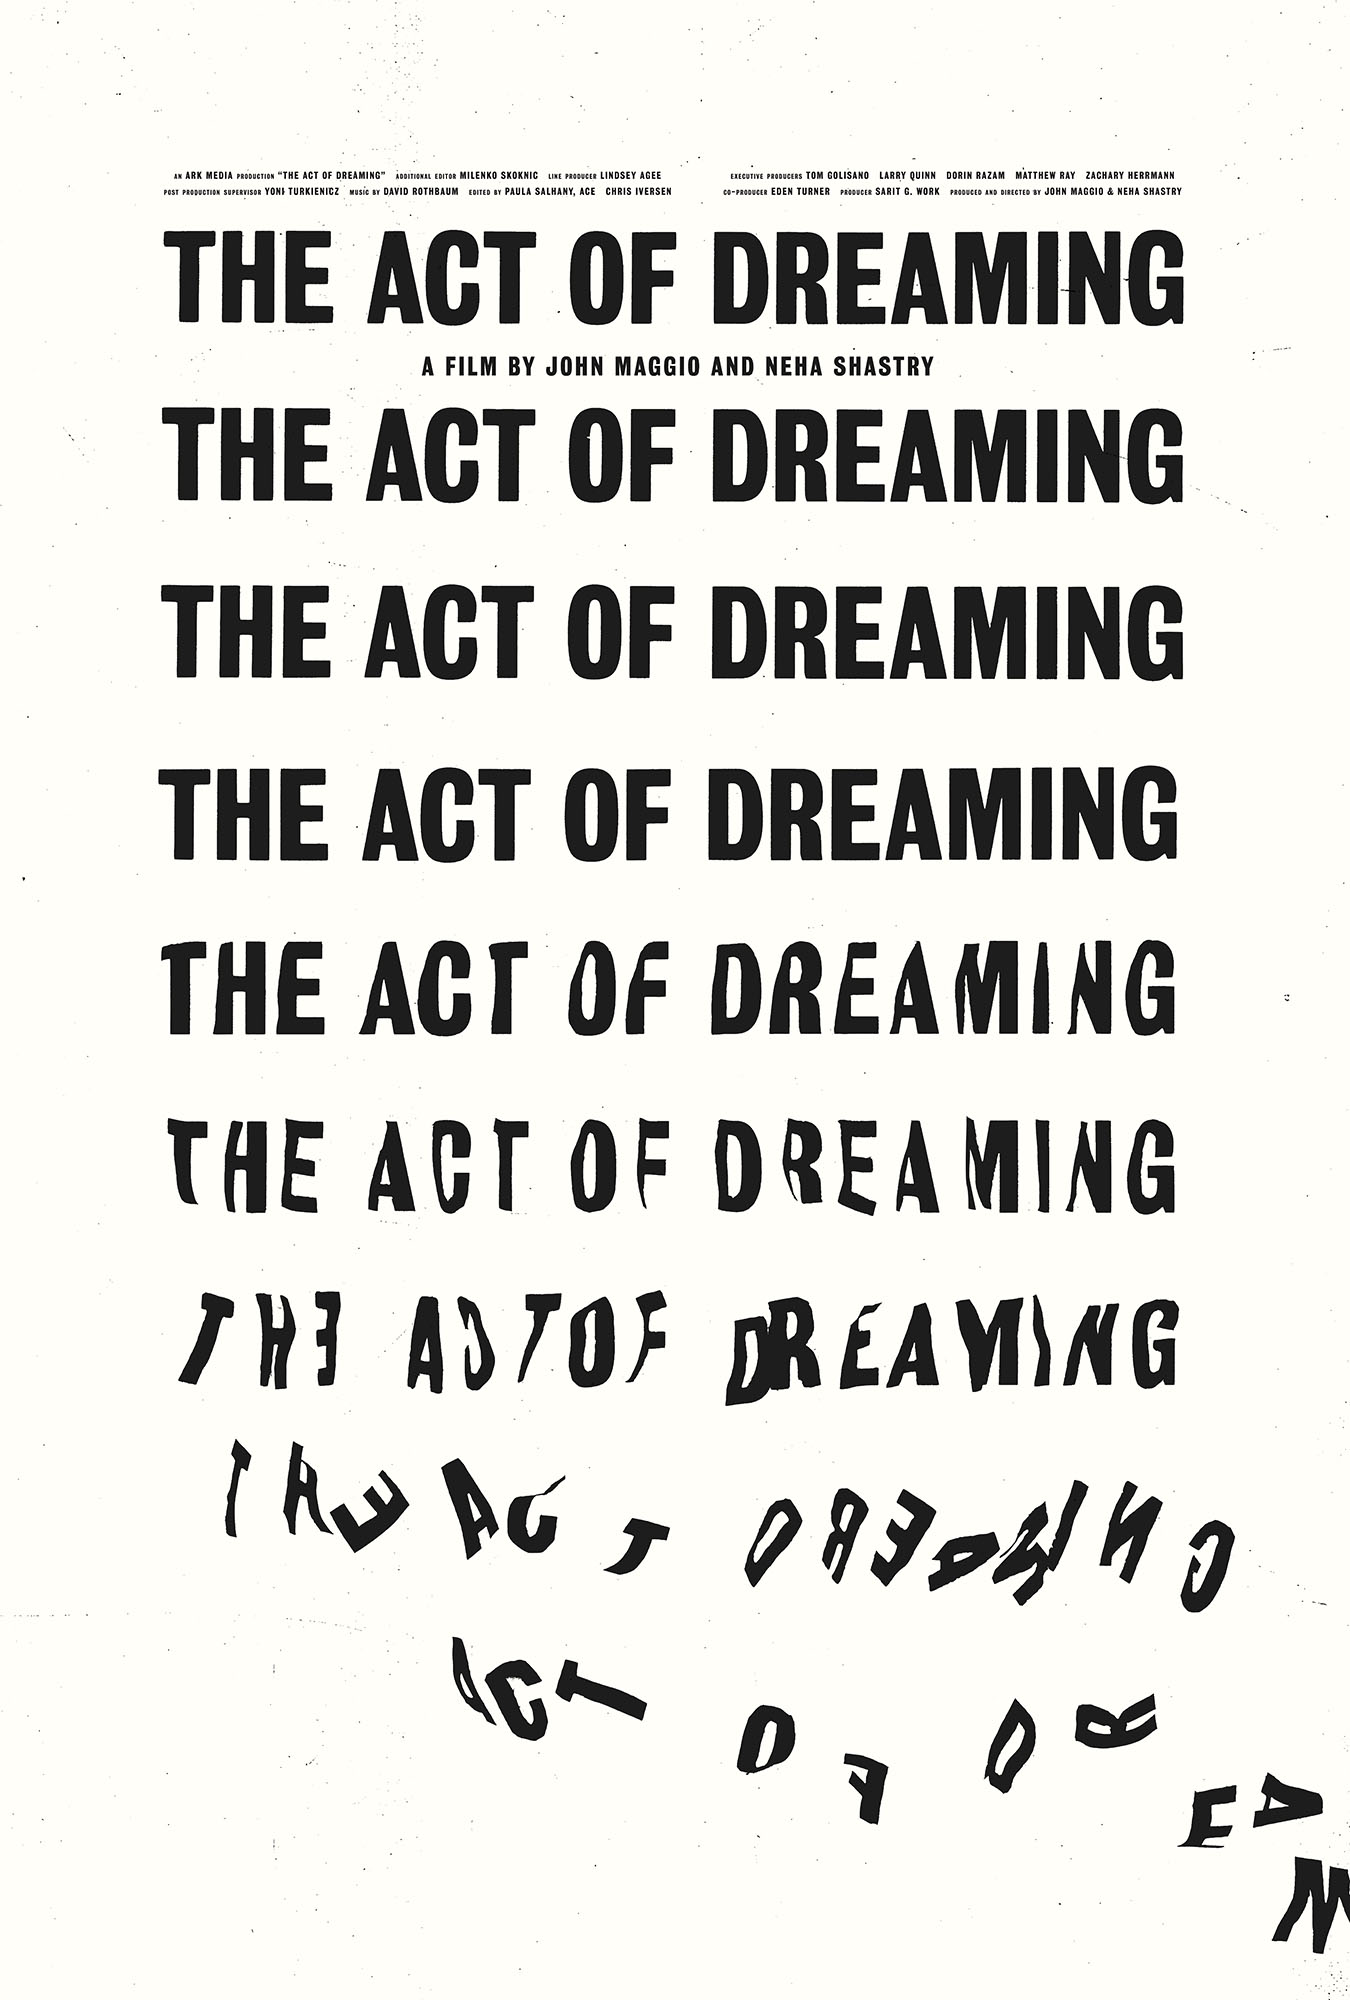 AN ARK MEDIA PRODUCTION "THE ACT OF DREAMING" ADDITIONAL EDITOR MILENKO SKOKNIC LINE PRODUCER LINDSEY AGEE
POST PRODUCTION SUPERVISOR YONI TURKIENICZ MUSIC BY DAVID ROTHBAUM EDITED BY PAULA SALHANY, ACE CHRIS IVERSEN
EXECUTIVE PRODUCERS TOM GOLISANO LARRY QUINN DORIN RAZAM MATTHEW RAY ZACHARY HERRMANN
CO-PRODUCER EDEN TURNER PRODUCER SARIT G. WORK PRODUCED AND DIRECTED BY JOHN MAGGIO & NEHA SHASTRY
THE ACT OF DREAMING
A FILM BY JOHN MAGGIO AND NEHA SHASTRY
THE ACT OF DREAMING
THE ACT OF DREAMING
THE ACT OF DREAMING
THE ACT OF DREAMING
THE ACT OF DREAMING
THE ACT OF DREAMING
THE ACT DREAMING
ACT OF DREAM